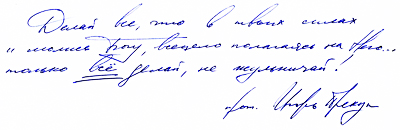 Делай все, что в твоих силах
и молись Богу, всецело полагаясь на Него...
только всё делай, не жульничай!
прот. Игорь